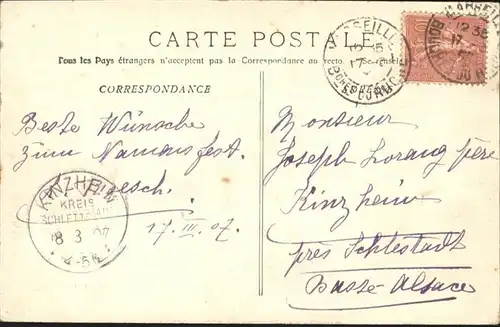 CARTE POSTALE
Tous les Pays étrangers n'acceptent pas la Correspondance au recto.
CORRESPONDANCE
Beste Wünsche
zum Namensfest.
17. III. 07
KINZHEIM
KREIS
SCHLETTSTADT
18 3 07
MARSEILLE
12 35
17
BCHES DU RHONE
MARSEILLE
12 35
17
Monsieur
Joseph Lorang père
Kinzheim
près Schlestadt
Basse-Alsace